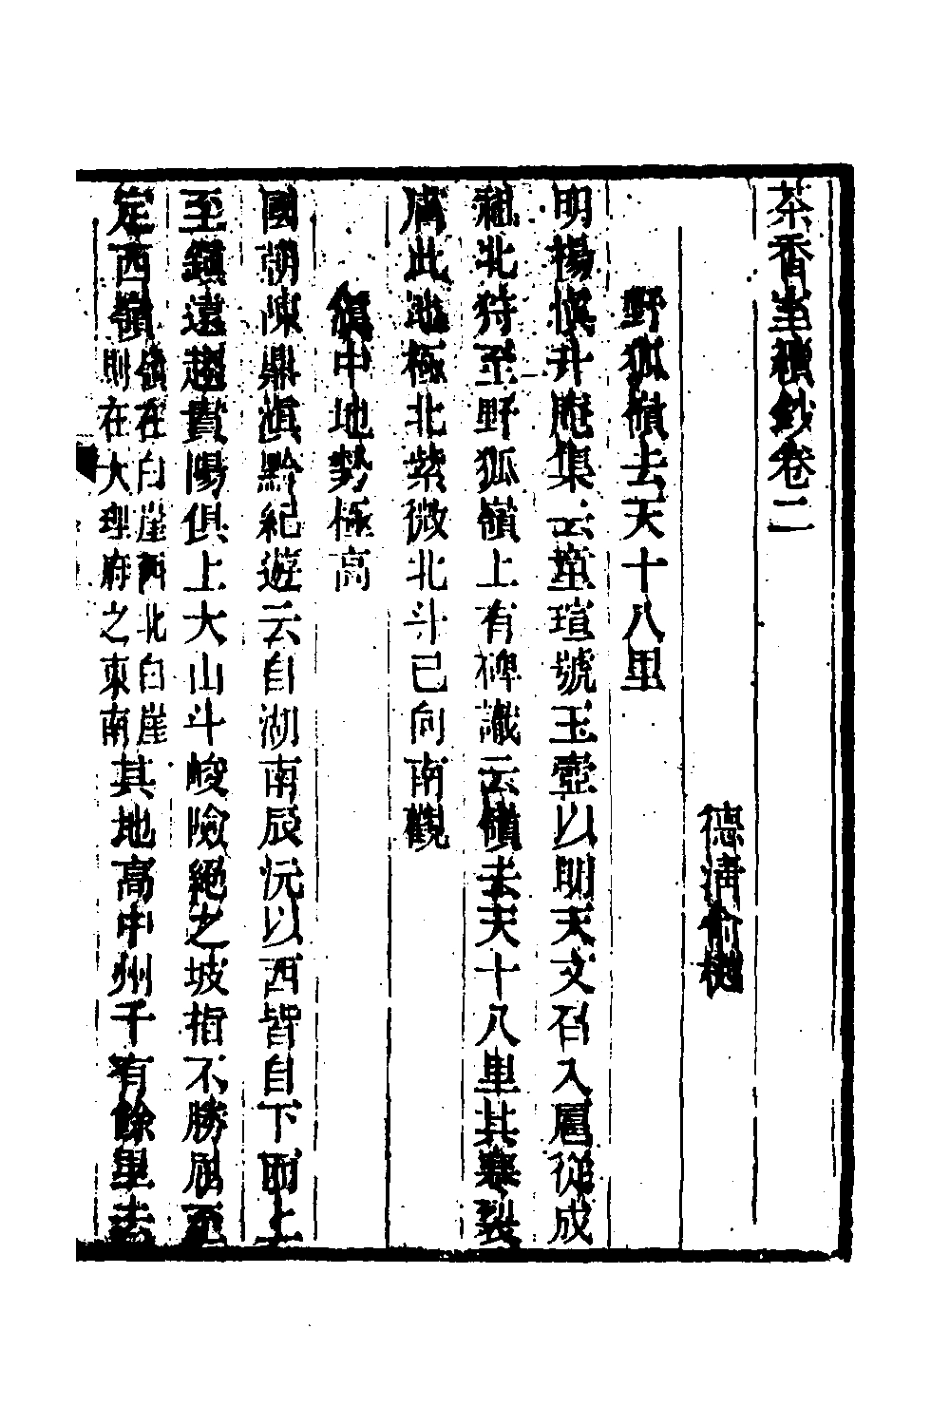 茶香室續鈔卷二
德清俞樾
野狐嶺去天十八里
明楊慎升庵集云童瑄號玉壺以明天文召入扈從成
祖北狩至野狐嶺上有碑讖云嶺去天十八里其寒裂
膚此地極北紫微北斗已向南觀
滇中地勢極高
國朝陳鼎滇黔紀遊云自湖南辰沅以西皆自下而上
至鎮遠趨貴陽俱上大山斗峻險絕之坡指不勝屈至
定西嶺嶺在白崖西北白崖則在大理府之東南其地高中州千有餘里去